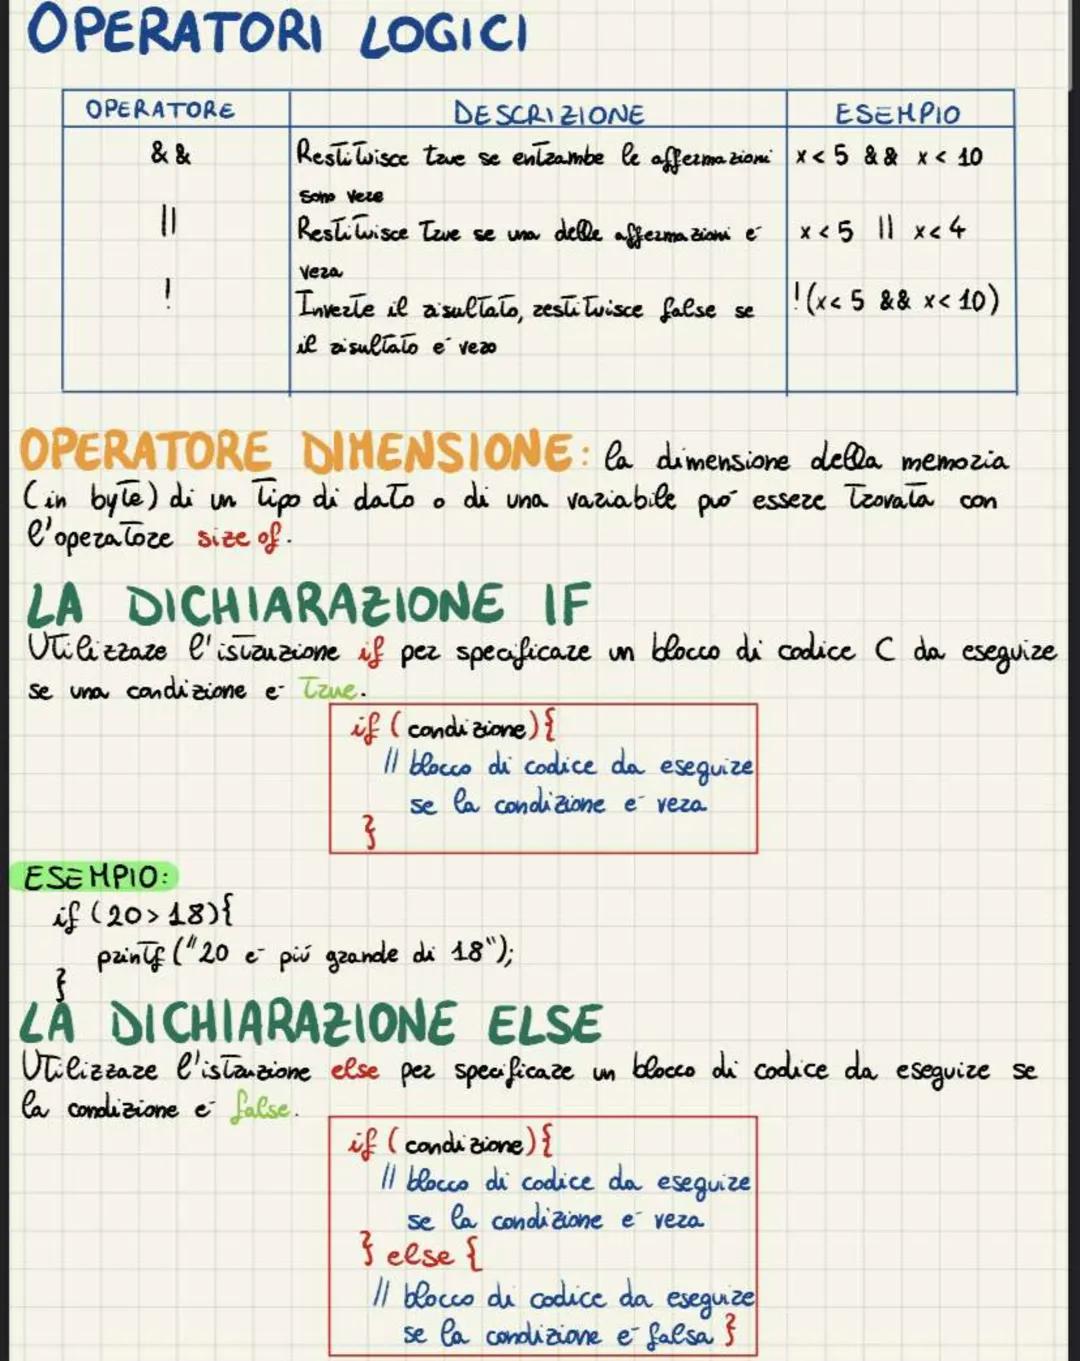 OPERATORI LOGICI
OPERATORE DESCRIZIONE ESEMPIO
&& Restituisce true se entrambe le affermazioni x < 5 && x < 10
sono vere
|| Restituisce true se una delle affermazioni é x < 5 || x < 4
vera
! Inverte il risultato, restituisce false se !(x < 5 && x < 10)
il risultato é vero
OPERATORE DIMENSIONE: la dimensione della memoria
(in byte) di un tipo di dato o di una variabile puó essere trovata con
l'operatore size of.
LA DICHIARAZIONE IF
Utilizzare l'istruzione if per specificare un blocco di codice C da eseguire
se una condizione é true.
if (condizione){
// blocco di codice da eseguire
se la condizione é vera
}
ESEMPIO:
if (20 > 18){
printf ("20 é piú grande di 18");
}
LA DICHIARAZIONE ELSE
Utilizzare l'istruzione else per specificare un blocco di codice da eseguire se
la condizione é false.
if (condizione){
// blocco di codice da eseguire
se la condizione é vera
} else {
// blocco di codice da eseguire
se la condizione é falsa }